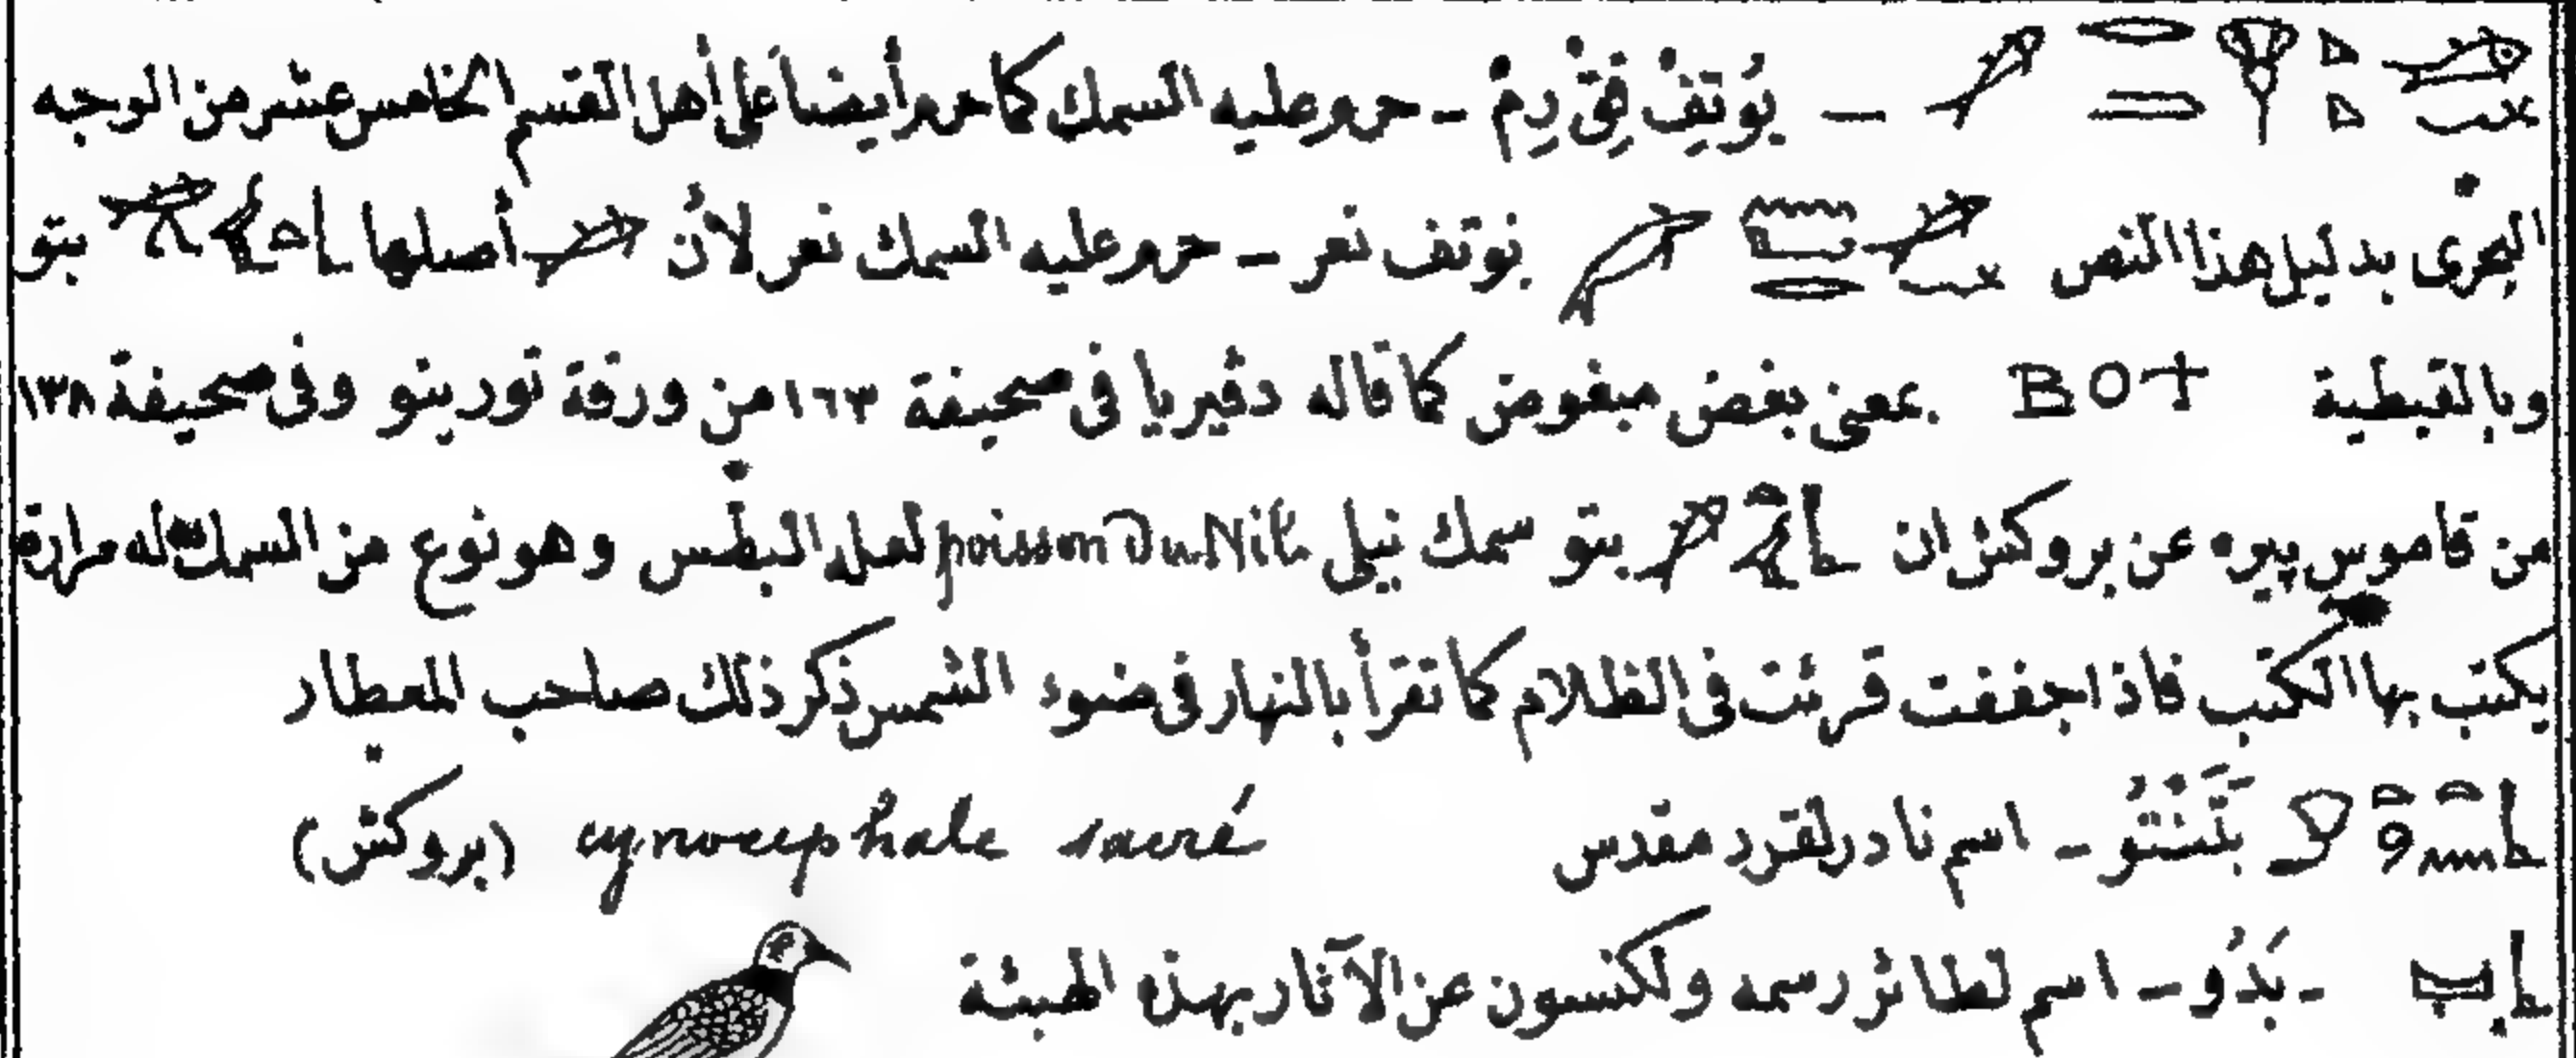 — بُوتِفْ فِقْ رِمْ - حرم عليه السمك كما حرم أيضا على أهل القسم الخامس عشر من الوجه
البحرى بدليل هذا النص بوتف نعر - حرم عليه السمك نعر لأن أصلها بتو
وبالقبطية BOT بمعنى بغض مبغوض كما قاله دڤيريا فى صحيفة ١٦٣ من ورقة تورينو وفى صحيفة ١٣٨
من قاموس پيره عن بروكش ان بتو سمك نيلى poisson du Nil لعل البطس وهو نوع من السمك له مرارة
يكتب بها الكتب فاذا جففت قرئت فى الظلام كما تقرأ بالنهار فى ضوء الشمس ذكر ذلك صاحب المعطار
بَتَنْتُو - اسم نادر لقرد مقدس cynocephale sacré (بروكش)
- بَدُو - اسم لطائر رسمه ولكنسون عن الآثار بهذه الهيئة